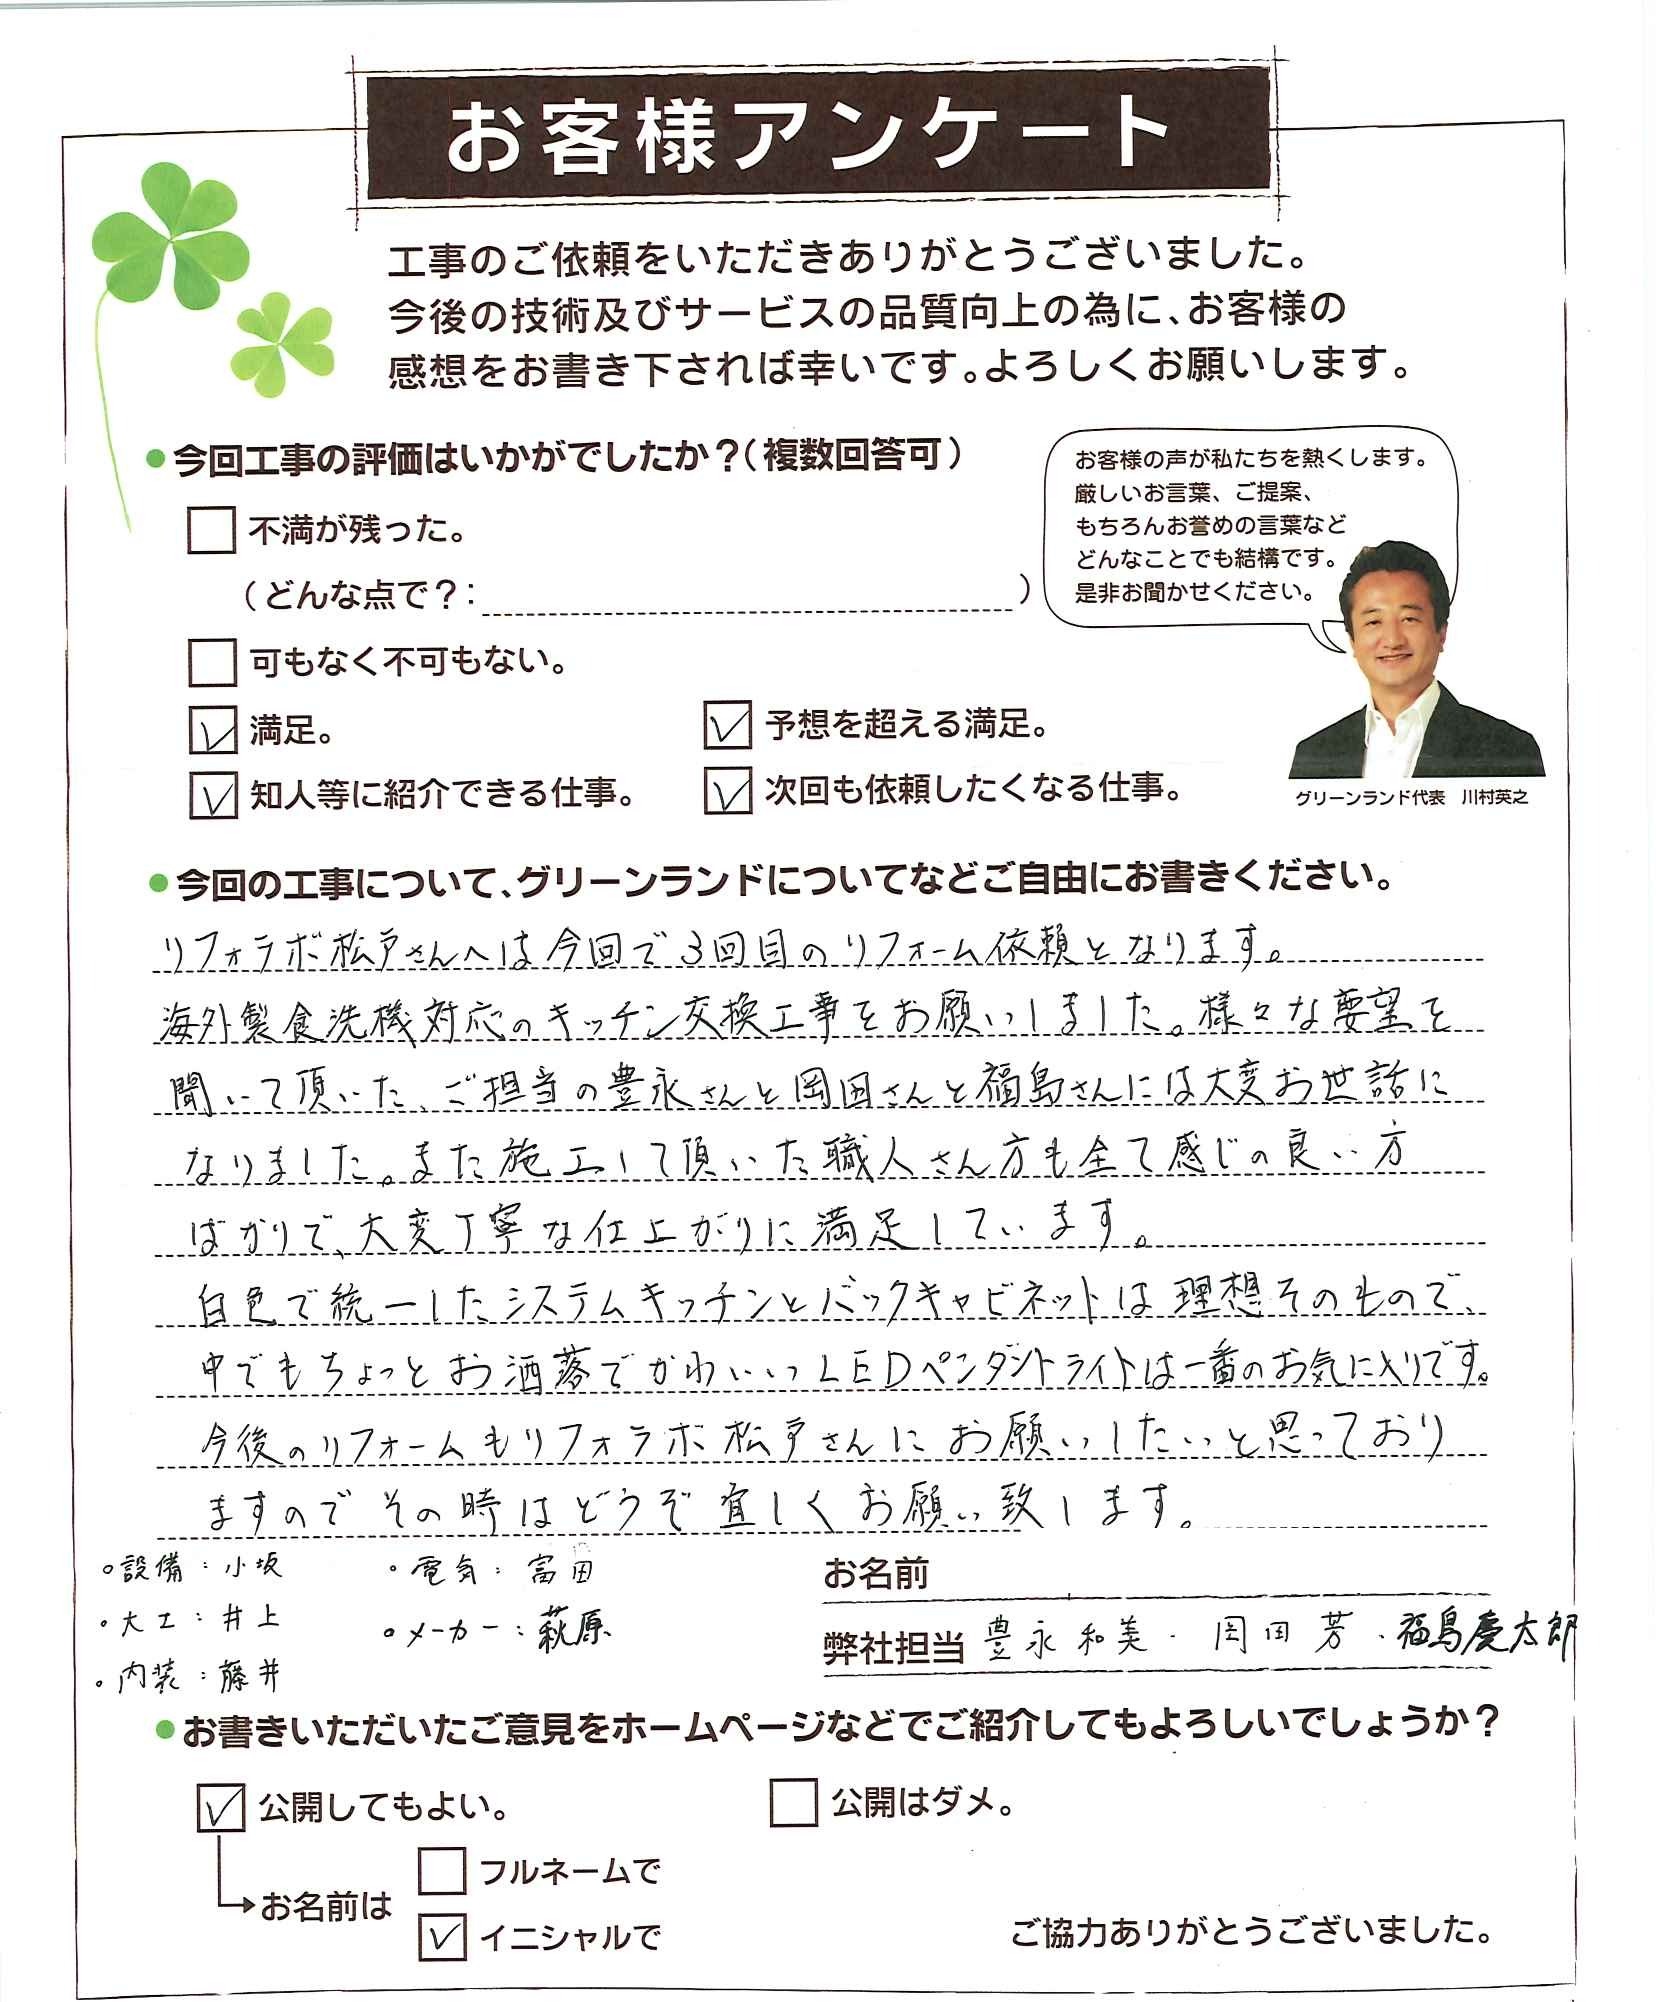 お客様アンケート
工事のご依頼をいただきありがとうございました。
今後の技術及びサービスの品質向上の為に、お客様の
感想をお書き下されば幸いです。よろしくお願いします。
●今回工事の評価はいかがでしたか?(複数回答可)
不満が残った。
(どんな点で?: )
可もなく不可もない。
満足。
予想を超える満足。
知人等に紹介できる仕事。
次回も依頼したくなる仕事。
お客様の声が私たちを熱くします。
厳しいお言葉、ご提案、
もちろんお誉めの言葉など
どんなことでも結構です。
是非お聞かせください。
グリーンランド代表 川村英之
●今回の工事について、グリーンランドについてなどご自由にお書きください。
リフォラボ松戸さんへは今回で3回目のリフォーム依頼となります。
海外製食洗機対応のキッチン交換工事をお願いしました。様々な要望を
聞いて頂いた、ご担当の豊永さんと岡田さんと福島さんには大変お世話に
なりました。また施工して頂いた職人さん方も全て感じの良い方
ばかりで、大変丁寧な仕上がりに満足しています。
白色で統一したシステムキッチンとバックキャビネットは理想そのもので、
中でもちょっとお洒落でかわいいLEDペンダントライトは一番のお気に入りです。
今後のリフォームもリフォラボ松戸さんにお願いしたいと思っており
ますのでその時はどうぞ宜しくお願い致します。
○設備:小坂
○電気:富田
○大工:井上
○メーカー:萩原
○内装:藤井
お名前
弊社担当 豊永和美・岡田芳・福島慶太郎
●お書きいただいたご意見をホームページなどでご紹介してもよろしいでしょうか?
公開してもよい。
公開はダメ。
お名前は
フルネームで
イニシャルで
ご協力ありがとうございました。